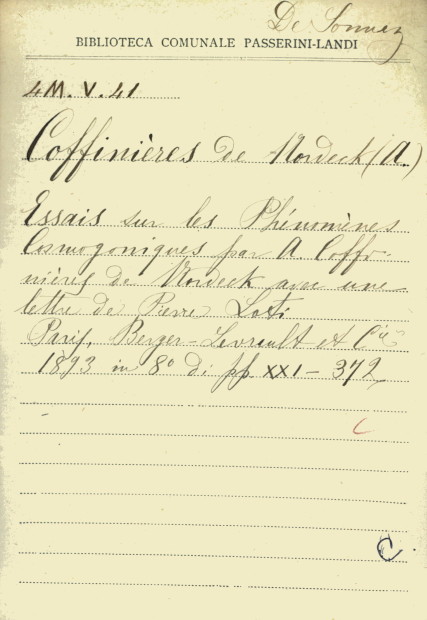 De
BIBLIOTECA COMUNALE PASSERINI-LANDI
4M. V. 41
Coffinières de Nordeck (A.)
Essais sur les Phénomènes
Cosmogoniques par A. Coffi-
nières de Nordeck avec une
lettre de Pierre Loti
Paris, Berger-Levrault et Cie
1893 in 8º di pp XXI - 372
C
C.